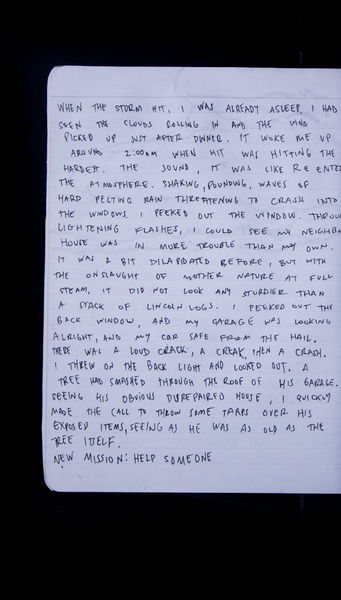 WHEN THE STORM HIT, I WAS ALREADY ASLEEP, I HAD
SEEN THE CLOUDS ROLLING IN AND THE WIND
PICKED UP JUST AFTER DINNER. IT WOKE ME UP
AROUND 2:00AM WHEN HIT WAS HITTING THE
HARDEST. THE SOUND, IT WAS LIKE RE ENTE
THE ATMOSPHERE. SHAKING, POUNDING, WAVES OF
HARD PELTING RAIN THREATENING TO CRASH INTO
THE WINDOWS. I PEEKED OUT THE WINDOW. THROU
LIGHTENING FLASHES, I COULD SEE MY NEIGHBO
HOUSE WAS IN MORE TROUBLE THAN MY OWN.
IT WAS A BIT DILAPIDATED BEFORE, BUT WITH
THE ONSLAUGHT OF MOTHER NATURE AT FULL
STEAM, IT DID NOT LOOK ANY STURDIER THAN
A STACK OF LINCOLN LOGS. I PEEKED OUT THE
BACK WINDOW, AND MY GARAGE WAS LOOKING
ALRIGHT, AND MY CAR SAFE FROM THE HAIL.
THERE WAS A LOUD CRACK, A CREAK, THEN A CRASH.
I THREW ON THE BACK LIGHT AND LOOKED OUT. A
TREE HAD SMASHED THROUGH THE ROOF OF HIS GARAGE.
SEEING HIS OBVIOUS DISREPAIRED HOUSE, I QUICKLY
MADE THE CALL TO THROW SOME TARPS OVER HIS
EXPOSED ITEMS, SEEING AS HE WAS AS OLD AS THE
TREE ITSELF.
NEW MISSION: HELP SOMEONE